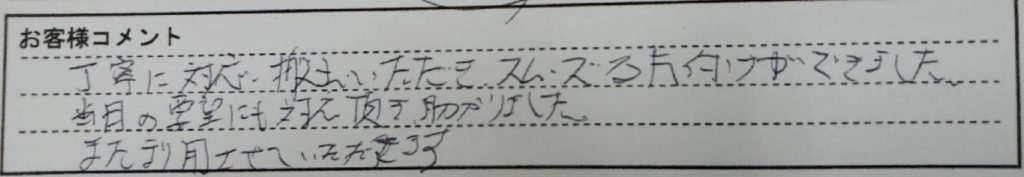 お客様コメント
丁寧に対応、搬出いただき、スムーズな片付けができました。
当日の要望にも対応頂き助かりました。
また利用させていただきます